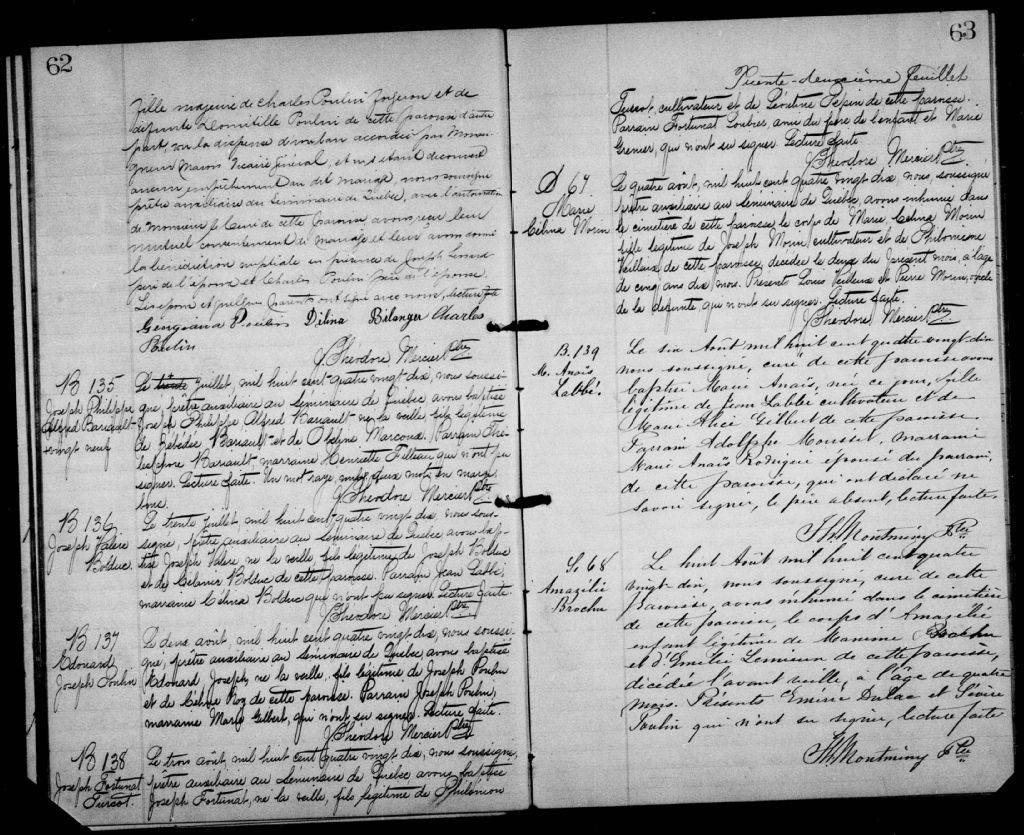 62
fille majeure de Charles Poulin forgeron et de
défunte Domitille Poulin de cette paroisse d'autre
part, vu la dispense d'un ban accordée par Monsei-
gneur Marois Vicaire Général, et ne s'étant découvert
aucun empêchement au dit mariage, nous soussigné
prêtre auxiliaire du Séminaire de Québec, avec l'autorisation
de Monsieur le Curé de cette paroisse avons reçu leur
mutuel consentement de mariage et leur avons donné
la bénédiction nuptiale en présence de Joseph
père de l'époux et Charles Poulin père de l'épouse.
Les époux et quelques parents ont signé avec nous, lecture faite
Georgiana Poulin Délina Bélanger Charles
Poulin
J. Théodore Mercier Ptre
B 135
Joseph Philippe
Alfred Bariault
vingt neuf
Le trente juillet, mil huit cent quatre vingt dix, nous soussi-
gné, prêtre auxiliaire au Séminaire de Québec avons baptisé
Joseph Philippe Alfred Bariault né la veille fils légitime
de Zébédée Bariault et de Obéline Marcoux. Parrain Thé-
lesphore Bariault, marraine Henriette Filteau qui n'ont pu
signer. Lecture faite. Un mot rayé, nul, deux mots en marge
bons.
J. Théodore Mercier Ptre
B 136
Joseph Valère
Bolduc.
Le trente juillet, mil huit cent quatre vingt dix, nous sous-
signé, prêtre auxiliaire au Séminaire de Québec avons bap-
tisé Joseph Valère né la veille fils légitime de Joseph Bolduc
et de Célanir Bolduc de cette paroisse. Parrain Jean Labbé,
marraine Célina Bolduc qui n'ont pu signer. Lecture faite.
J. Théodore Mercier Ptre
B 137
Edouard
Joseph Poulin
Le deux août, mil huit cent quatre vingt dix, nous soussi-
gné, prêtre auxiliaire au Séminaire de Québec avons baptisé
Edouard Joseph, né la veille, fils légitime de Joseph Poulin
et de Célina Roy de cette paroisse. Parrain Joseph Poulin,
marraine Marie Gilbert, qui n'ont su signer. Lecture faite.
J. Théodore Mercier Ptre
B 138
Joseph Fortunat
Turcot.
Le trois août, mil huit cent quatre vingt dix, nous soussigné,
prêtre auxiliaire au Séminaire de Québec avons baptisé
Joseph Fortunat, né la veille, fils légitime de Philémon
63
Trente-deuxième feuillet
Turcot, cultivateur et de Léontine Pépin de cette paroisse.
Parrain Fortunat Loubier, ami du père de l'enfant et Marie
Grenier, qui n'ont su signer. Lecture faite
J. Théodore Mercier Ptre
S 67
Marie
Célina Morin
Le quatre août, mil huit cent quatre vingt dix, nous, soussigné
prêtre auxiliaire au Séminaire de Québec, avons inhumé dans
le cimetière de cette paroisse le corps de Marie Célina Morin
fille légitime de Joseph Morin, cultivateur et de Philomène
Veilleux de cette paroisse, décédée le deux du présent mois, à l'âge
de cinq ans dix mois. Présents Louis Veilleux et Pierre Morin, oncle
de la défunte, qui n'ont su signer. Lecture faite.
J. Théodore Mercier Ptre
B. 139
M. Anaïs
Labbé.
Le six Août mil huit cent quatre vingt-dix
nous soussigné, curé de cette paroisse avons
baptisé Marie Anaïs, née ce jour, fille
légitime de Jean Labbé cultivateur et de
Marie Alice Gilbert de cette paroisse.
Parrain Adolphe Mousset, marraine
Marie Anaïs Rodrigue épouse du parrain,
de cette paroisse, qui ont déclaré ne
savoir signer, le père absent, lecture faite.
Th. Montminy Ptre
S. 68
Amazélie
Brochu
Le huit Août mil huit cent quatre
vingt dix, nous soussigné, curé de cette
paroisse, avons inhumé dans le cimetière
de cette paroisse, le corps d'Amazélie
enfant légitime de Maxime Brochu
et d'Emélie Lemieux de cette paroisse,
décédée l'avant veille, à l'âge de quatre
mois. Présents Emérie Dulac et Sévère
Poulin qui n'ont su signer, lecture faite
Th. Montminy Ptre